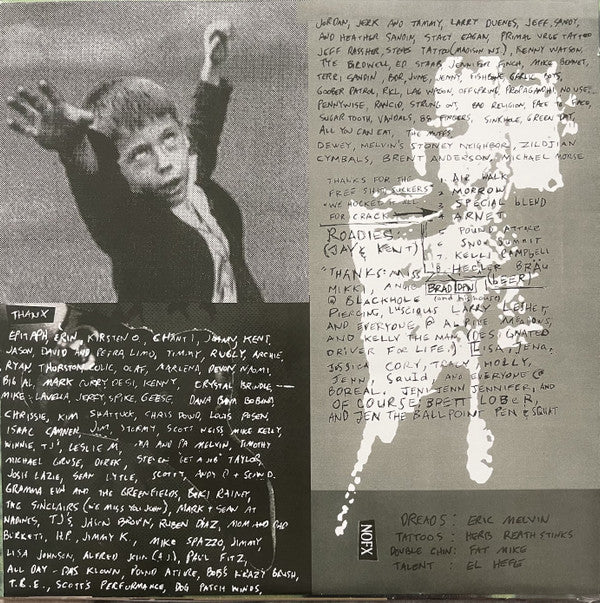 THANX
EPITAPH, ERIN, KIRSTEN O., CHANTI, JOHNNY KENT,
JASON, DAVID AND PETRA LIMO, TIMMY, RUGLY, ARCHIE,
RYAN THORSTON, OLAF, MARLENA, DEVON, NAOMI,
BIG AL, MARK CURRY, DESI, KENNY, CRYSTAL
MIKE LAVELLA, JEREY, SPIKE, GEESE, DANA
CHRISSIE, KIM SHATTUCK, CHRIS DOWD, LOUIS POSEN,
ISAAC CAMNER, JIM, STORMY, SCOTT WEISS, MIKE KELLY,
WINNIE, TJ, LESLIE M, MA AND PA MELVIN, TIMOTHY
MICHAEL GRUSE, DEREK, STEVEN "GET A JOB" TAYLOR,
JOSIE LAZIE, SEAN LYTLE, SCOTT, ANDY
GRAMMA EVN AND THE GREENFIELDS, BEKI RAINT,
THE SINCLAIRS (WE MISS YOU JOHN), MARK + SEAN AT
NARDINES, TJ'S, JASON BROWN, RUBEN DIAZ, MOM AND DAD
BURKETT, H.P., JIMMY K., MIKE SPAZZO, JIMMY,
LISA JOHNSON, ALFRED JOHN (A.J.), PAUL FITZ,
ALL DAY - DAS KLOWN, POUND ATTIRE, BOB'S KRAZY BRUSH,
T.R.E., SCOTT'S PERFORMANCE, DOG PATCH WINDS,
JORDAN, JERK AND TAMMY, LARRY DUENES, JEFF, SANDY,
AND HEATHER SANDIN, STACY EAGAN, PRIMAL URGE TATTOO
JEFF RASSHER, STEVES TATTOO (MADISON WI), KENNY WATSON
TYE BIRDWELL, ED STARR, JENNIFER FINCH, MIKE BENNET,
TERRI GANDIN, BOB, JUNE, JENNY, FISHBONE, GARLIC, POTS,
GOOBER PATROL, RKL, LAG WAGON, OFFSPRING, PROPAGANDHI, NO USE..
PENNYWISE, RANCID, STRUNG OUT, BAD RELIGION, FACE TO FACE,
SUGAR TOOTH, VANDALS, BG WINGERS, SINKHOLE, GREEN DAY,
ALL YOU CAN EAT, THE MUFFS
DEWEY, MELVIN'S STONEY NEIGHBOR, ZILDJIAN
CYMBALS, BRENT ANDERSON, MICHAEL MORSE
THANKS FOR THE
FREE SHIT, SUCKERS
"WE HOCKED IT ALL
FOR CRACK"
1. AIR WALK
2. MORROW
3. SPECIAL BLEND
4. ARNET
5. POUND ATTIRE
6. SNOW SUMMIT
7. KELLI CAMPBELL
8. HECTER BRÄU
ROADIES:
(JAY & KENT)
BRAD DAN (BEER)
"THANKS: MISS
MIKKI AND
@ BLACKHOLE (and his house)
PIERCING, LUSCIOUS LARRY LEHET,
AND EVERYONE @ ALPINE MEADOWS,
AND KELLY THE MAN DESIGNATED
DRIVER FOR LIFE, LISA, JENA,
JESSICA, CORY, TRACY, HOLLY,
JENNY SQUID, AND EVERYONE @
BOREAL. JENI, JENN, JENNIFER, AND
OF COURSE, BRETT LOBER,
AND JEN THE BALLPOINT PEN & SQUAT
NOFX
DREADS: ERIC MELVIN
TATTOOS: HERB REATH STINKS
DOUBLE CHIN: FAT MIKE
TALENT: EL HEFE